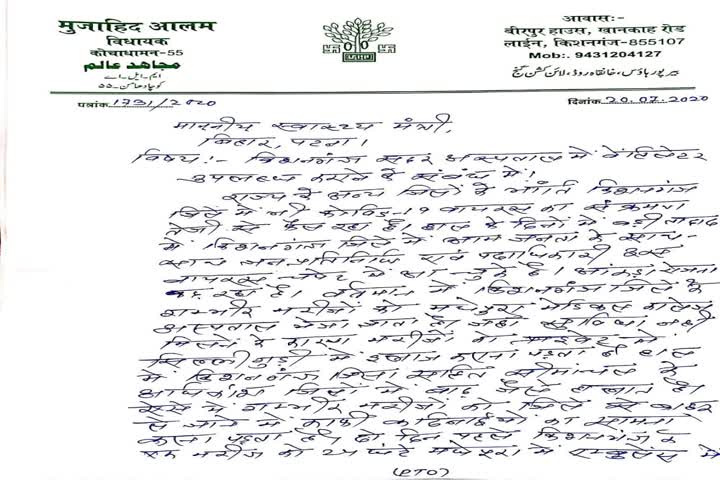 मुजाहिद आलम
विधायक
कोचाधामन-55
مجاہد عالم
ایم۔ایل۔اے
کوچادھامن۔۵۵
आवास:-
बीरपुर हाउस, खानकाह रोड
लाईन, किशनगंज-855107
Mob:. 9431204127
بیرپور ہاؤس، خانقاہ روڈ، لائن کشن گنج
पत्रांक 1731/2020
दिनांक 20.07.2020
माननीय स्वास्थ्य मंत्री,
बिहार, पटना।
विषय:- किशनगंज सदर अस्पताल में वेंटिलेटर
उपलब्ध कराने के संबंध में।
राज्य के अन्य जिलों के भाँति किशनगंज
जिले में भी कोविड-19 वायरस का संक्रमण
तेजी से फैल रहा है। हाल के दिनों में बड़ी तादाद
में किशनगंज जिले में आम जनता के साथ-
साथ जनप्रतिनिधि एवं पदाधिकारी इस
वायरस चपेट में आ चुके हैं। आंकड़ा रोजाना
बढ़ रहा है। वर्तमान में किशनगंज जिले के
गम्भीर मरीजों को मधेपुरा मेडिकल कालेज
अस्पताल भेजा जाता है जहां सुविधा नहीं
मिलने के कारण मरीजों को प्राइवेट में
सिलीगुड़ी में इलाज कराना पड़ता है हाल
में किशनगंज जिला सहित सीमांचल के
अधिकांश जिलों में बाढ़ जैसे हालात हैं।
ऐसे में गम्भीर मरीजों को जिले से बाहर
ले जाने में काफी कठिनाईयों का सामना
करना पड़ता है। दो दिन पहले किशनगंज के
एक मरीज को 24 घंटे मधेपुरा में एम्बुलेंस में
(PTO)